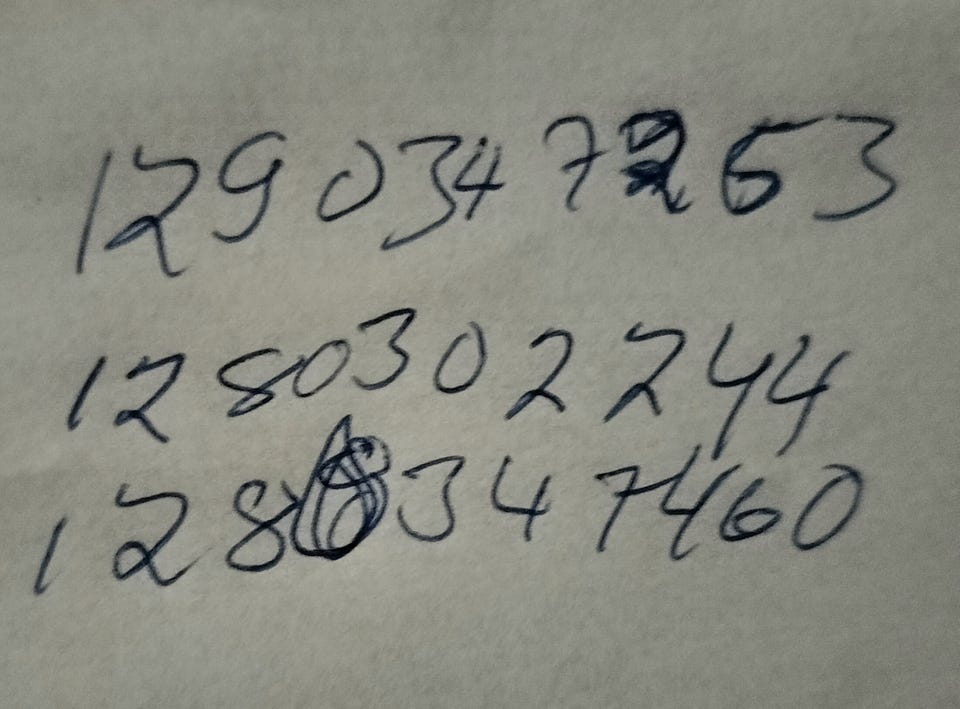 1290347253
1280302244
128 347460